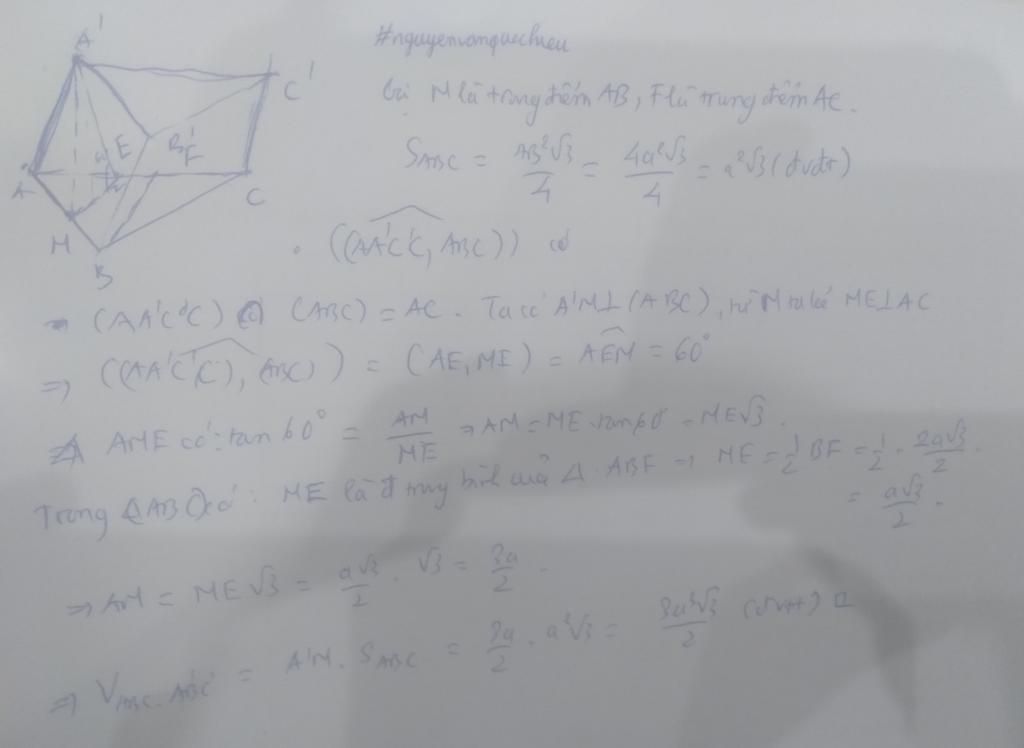 #nguyenvanquchieu
Gọi M là trung điểm AB, F là trung điểm AC.
S_ABC = AB²√3/4 = 4a²√3/4 = a²√3 (đvdt)
A' C' E B' F A C M B
. ((AA'C'C, ABC)) có
→ (AA'C'C) ∩ (ABC) = AC. Ta có A'M⊥(ABC), từ M ta kẻ ME⊥AC
=> ((AA'C'C), (ABC)) = (AE, ME) = AEM = 60°
Δ AME có: tan 60° = AM/ME => AM = ME.tan60° = ME√3.
Trong ΔABC có: ME là đ trung bình của Δ ABF => ME = 1/2 BF = 1/2 . 2a√3/2 = a√3/2.
=> AM = ME√3 = a√3/2 . √3 = 3a/2.
=> V_ABC.A'B'C' = A'M. S_ABC = 3a/2 . a²√3 = 3a³√3/2 (đvtt)